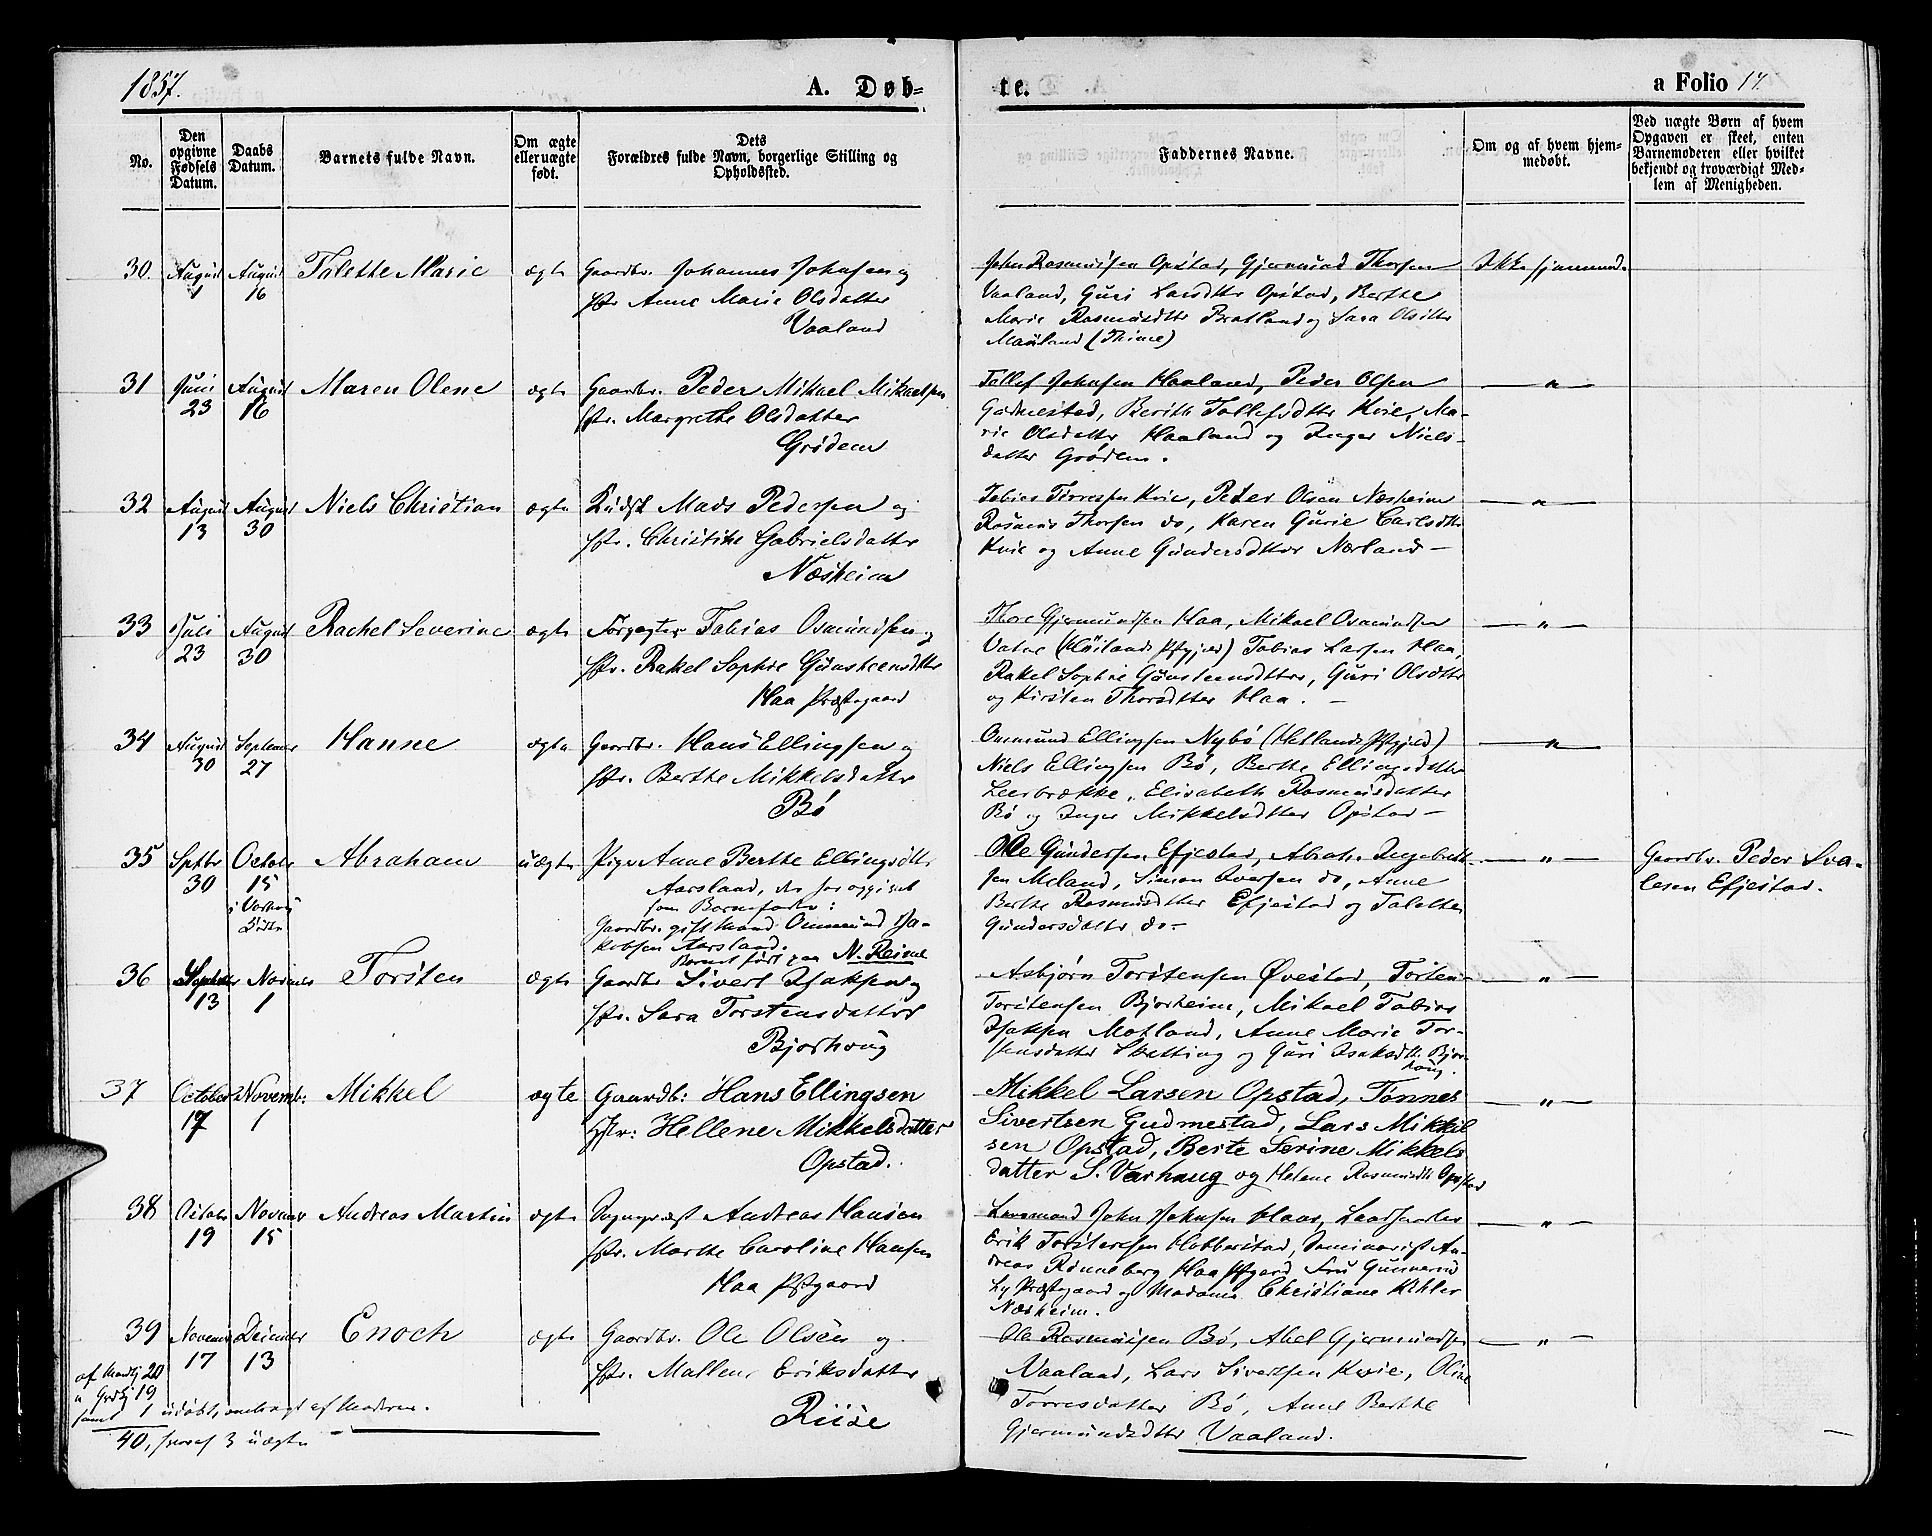 1857.
A. Døb=
te.
a Folio 17.
No.
Den opgivne Fødsels Datum.
Daabs Datum.
Barnets fulde Navn.
Om ægte eller uægte født.
Dets Forældres fulde Navn, borgerlige Stilling og Opholdssted.
Faddernes Navne.
Om og af hvem hjemmedøbt.
Ved uægte Børn af hvem Opgaven er skeet, enten Barnemoderen eller hvilket bekjendt og troværdigt Medlem af Menigheden.
30. August 1 August 16 Talette Marie ægte Gaardbr. Johannes Johnsen og
Hstr. Anne Marie Olsdatter
Vaaland
John Rasmussen Opstad, Gjermund Thorsen
Vaaland, Guri Larsdtter Opstad, Berthe
Marie Rasmusdtter Bratland og Sara Olsdtter
Mauland (Thime)
Ikke hjemmed.
31 Juni 23 August 16 Maren Olene ægte Gaardbr. Peder Mikael Mikaelsen
Hstr. Margrethe Olsdatter
Grødem
Tollef Johnsen Haaland, Peder Olsen
Gudmestad, Berith Tollefsdtter Kvie, Ma-
rie Olsdatter Haaland og Inger Niels-
datter Grødem.
— " —
32 August 13 August 30 Niels Christian ægte Mads Pedersen og
Hstr. Christine Gabrielsdatter
Næsheim
Tobias Torresen Kvie, Peter Olsen Næsheim
Rasmus Thorsen do, Karen Gurie Carlsdtter
Kvie og Anne Gundersdtter Nærland —
— " —
33 Juli 23 August 30 Rachel Severine ægte Forpagter Tobias Osmundsen og
Hstr. Rakel Sophie Gunsteensdtter
Haa Præstegaard
Thore Gjermundsen Haa, Mikael Osmundsen
Vatne (Høilands Pstgjæld) Tobias Larsen Haa,
Rakel Sophie Gunsteensdtter, Guri Olsdtter
og Kirsten Thorsdtter Haa. —
— " —
34 August 30 September 27 Hanne ægte Gaardbr. Hans Ellingsen og
Hstr. Berthe Mikkelsdatter
Bø
Osmund Ellingsen Nybø (Hetlands Pstgjeld)
Niels Ellingsen Bø, Berthe Ellingsdatter
Leerbrække, Elisabeth Rasmusdatter
Bø og Inger Mikkelsdtter Opstad —
— " —
35 Septbr 30 Octobr 15 i Varhoug Abraham uægte Pige Anne Berthe Ellingsdtter
Aarsland, der har opgivet
som Barnefader:
Gaardbr. gift Mand Ommund Ja-
kobsen Aarsland.
Barnet født paa N. Reime
Ole Gundersen Efjestad, Abrah. Ingebrett-
sen Meland, Simon Iversen do, Anne
Berthe Rasmusdtter Efjestad og Talette
Gundersdatter do —
— " —
Gaardbr. Peder Sva-
lesen Efjestad.
36 September 13 November 1 Torsten ægte Gaardbr Sivert Isaksen og
Hstr. Sara Torstensdatter
Bjorhoug
Asbjørn Torstensen Øvestad, Torsten
Torstensen Bjorheim, Mikael Tobias
Isaksen Motland, Anne Marie Tor-
stensdatter Skatting og Guri Isaksdtt. Bjor-
houg.
— " —
37 October 17 Novemb: 1 Mikkel ægte Gaardb: Hans Ellingsen
Hstr: Hellene Mikkelsdatter
Opstad.
Mikkel Larsen Opstad, Tønnes
Sivertsen Gudmestad, Lars Mikkel
sen Opstad, Berte Serine Mikkels
datter S. Varhaug og Helene Rasmusdtt Opstad
— " —
38 Octobr 19 November 15 Andreas Martin ægte Andreas Hansen
Hstr. Marthe Caroline Hansen
Haa Pstgaard
Lensmand John Johnsen Haar, Landhandler
Erik Torstensen Hobberstad, Seminarist An-
dreas Rønneberg Haa Pstgaard Fru Gunnerius
Ly Præstegaard og Madame Christiane Kehler
Næsheim.
— " —
39 November 17 December 13 Enoch ægte Gaardbr. Ole Olsen og
Hstr. Mallene Eriksdatter
Riise
Ole Rasmusen Bø, Abel Gjermundsen
Vaaland, Lars Sivertsen Kvie, Oline
Torresdatter Bø, Anne Berthe
Gjermundsdtter Vaaland.
— " —
af Mandkj 20
" Qvdkj 19
samt 1 udøbt, ombragt af Moderen.
40, hvoraf 3 uægte —